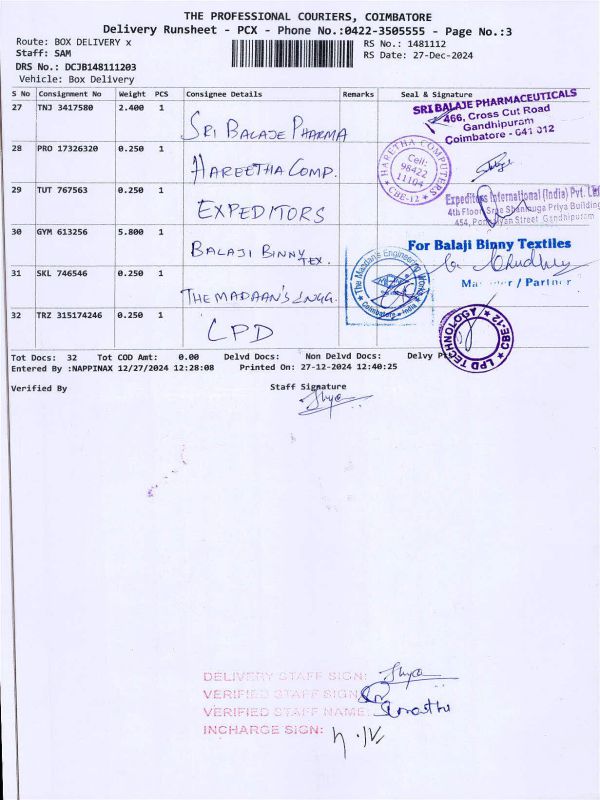 THE PROFESSIONAL COURIERS, COIMBATORE
Delivery Runsheet - PCX - Phone No.:0422-3505555 - Page No.:3
Route: BOX DELIVERY x
RS No.: 1481112
Staff: SAM
RS Date: 27-Dec-2024
DRS No.: DCJB148111203
Vehicle: Box Delivery
S No Consignment No Weight PCS Consignee Details Remarks Seal & Signature
27 TNJ 3417580 2.400 1 SRI BALAJE PHARMA
SRI BALAJE PHARMACEUTICALS
466, Cross Cut Road
Gandhipuram
Coimbatore - 641 012
28 PRO 17326320 0.250 1 HAREETHA COMP.
HARETHA COMPUTERS
Cell:
98422
11104
CBE-12
29 TUT 767563 0.250 1 EXPEDITORS
Expeditors International (India) Pvt. Ltd
4th Floor, Sree Shanmuga Priya Building
454, Street, Gandhipuram
30 GYM 613256 5.800 1 BALAJI BINNY TEX.
For Balaji Binny Textiles
Manager / Partner
31 SKL 746546 0.250 1 THE MADAAN'S ENGG.
The Madaan's Engineering Works
Coimbatore - India
32 TRZ 315174246 0.250 1 LPD
LPD TECHNOLOGY
CBE-12
Tot Docs: 32 Tot COD Amt: 0.00 Delvd Docs: Non Delvd Docs: Delvy
Entered By :NAPPINAX 12/27/2024 12:28:08 Printed On: 27-12-2024 12:40:25
Verified By
Staff Signature
DELIVERY STAFF SIGN:
VERIFIED STAFF SIGN
VERIFIED STAFF NAME:
INCHARGE SIGN: